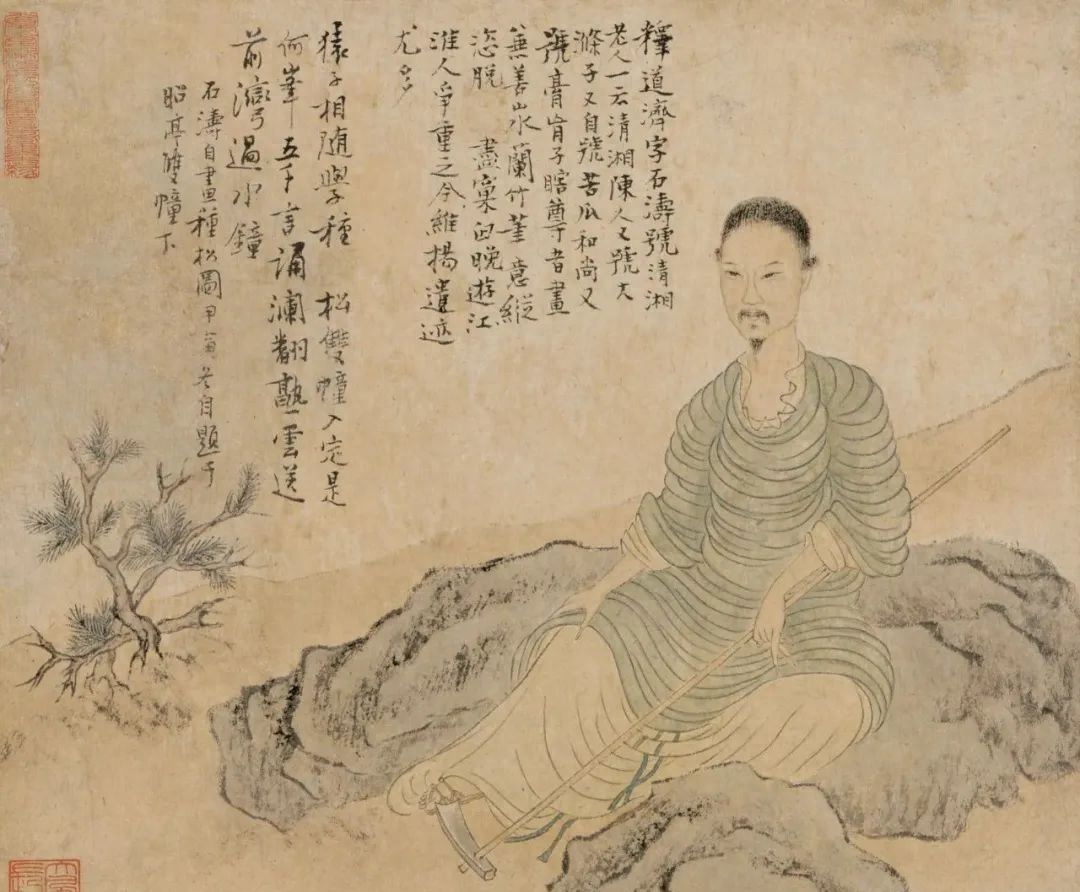 釋道濟字石濤號清湘
老人一云清湘陳人又號大
滌子又自號苦瓜和尚又
號膏肓子瞎尊者畫
兼善山水蘭竹筆意縱
恣脫 盡窠臼晚遊江
淮人爭重之今維揚遺迹
尤多
猿子相隨學種 松雙幢入定是
何峯五千言誦瀾翻熟雲送
前灣過水鐘
石濤自畫種松圖甲寅冬自題于
昭亭雙幢下